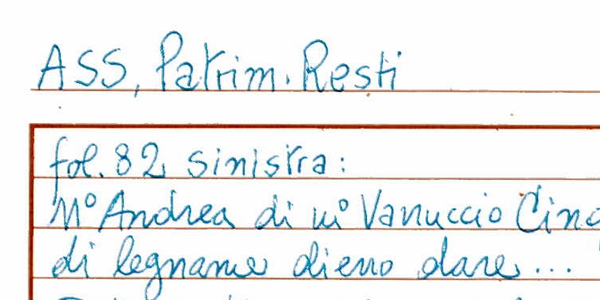 ASS, Patrim. Resti
fol. 82 sinistra:
Mº Andrea di mº Vanuccio
di legname dieno dare...